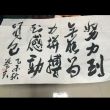 努力到
无能为
力拼搏
到感動
自己